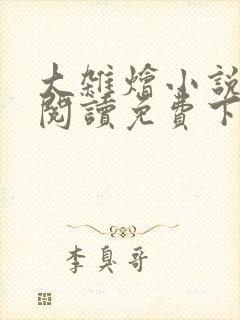 大雜燴小說
閱讀免費下
李臭哥